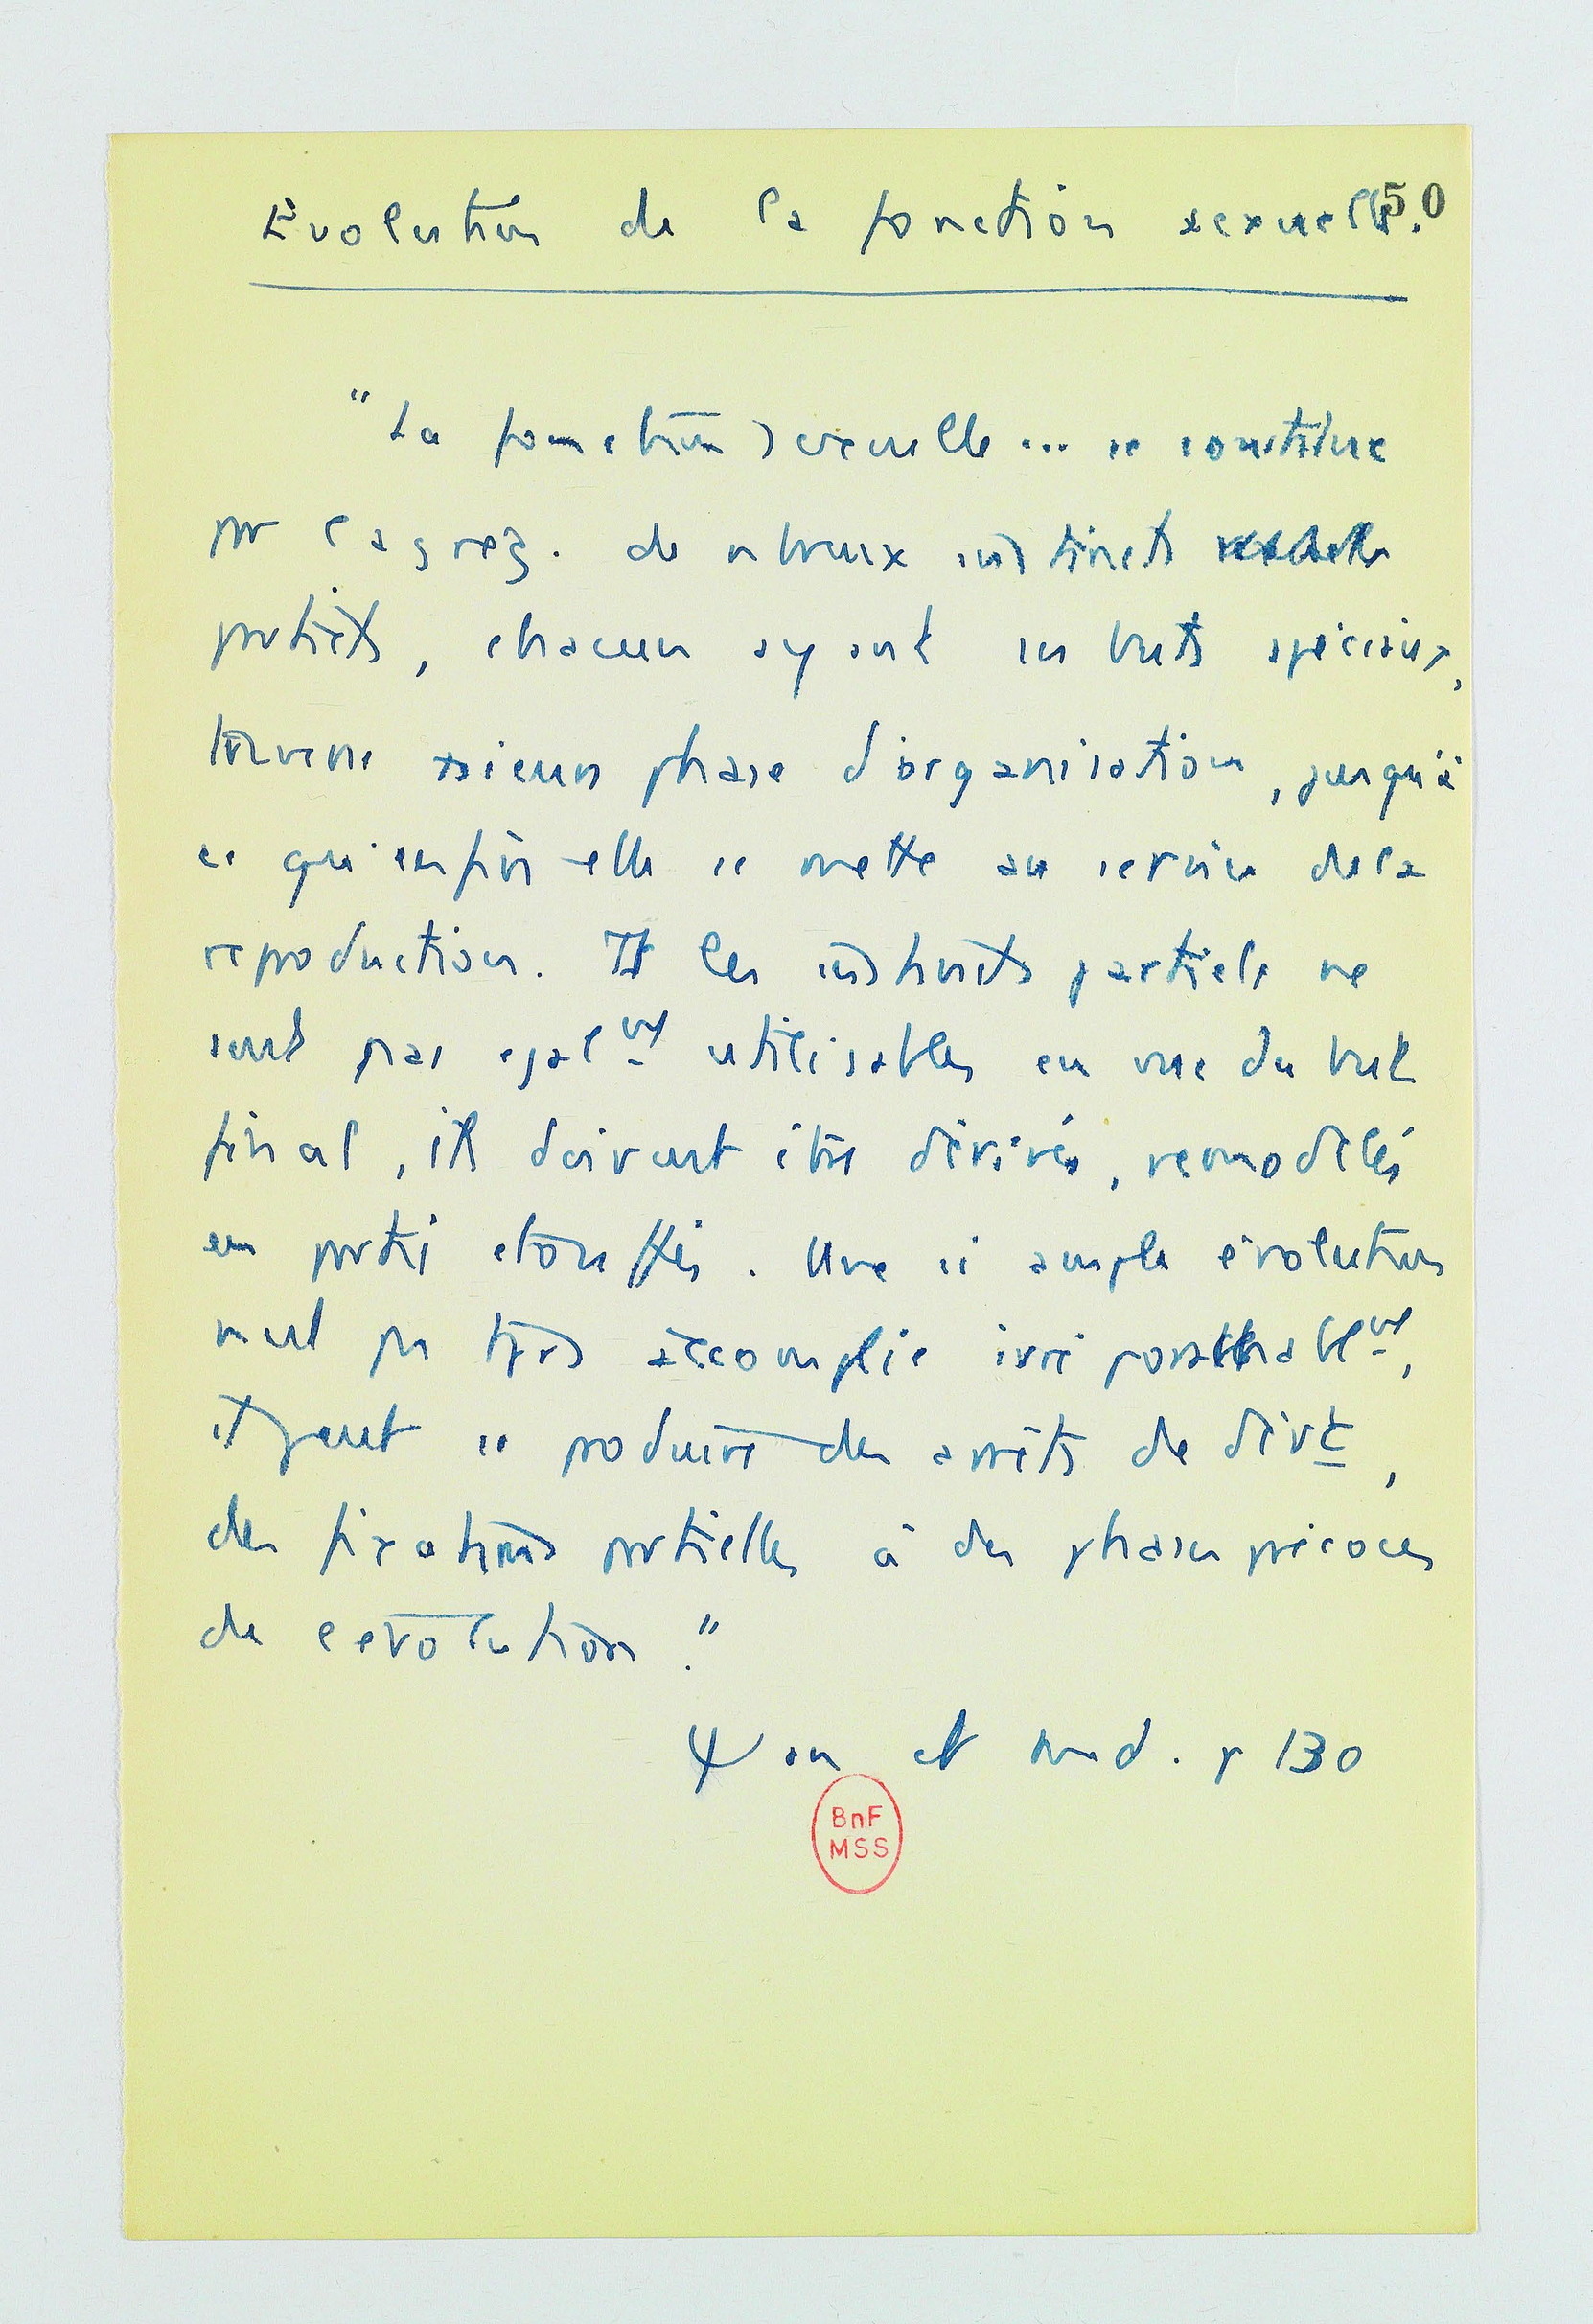 50
Evolution de la fonction sexuelle.
"La fonction sexuelle ... se constitue
pr l'agreg. de nbreux instincts
partiels, chacun ayant ses buts spéciaux,
traverse phase d'organisation, jusqu'à
ce qu'enfin elle se mette au service de la
reproduction. Tt les instincts partiels ne
sont pas egalmt utilisables en vue du but
final, ils doivent être dérivés, remodelés
en partie etouffés. Une si ample évolution
n'est pas tjrs accomplie irréprochablmt,
il peut se produire des arrêts de dévt,
des fixations partielles à des phases précoces
de l'evolution."
Ψan et med. p 130
BnF
MSS